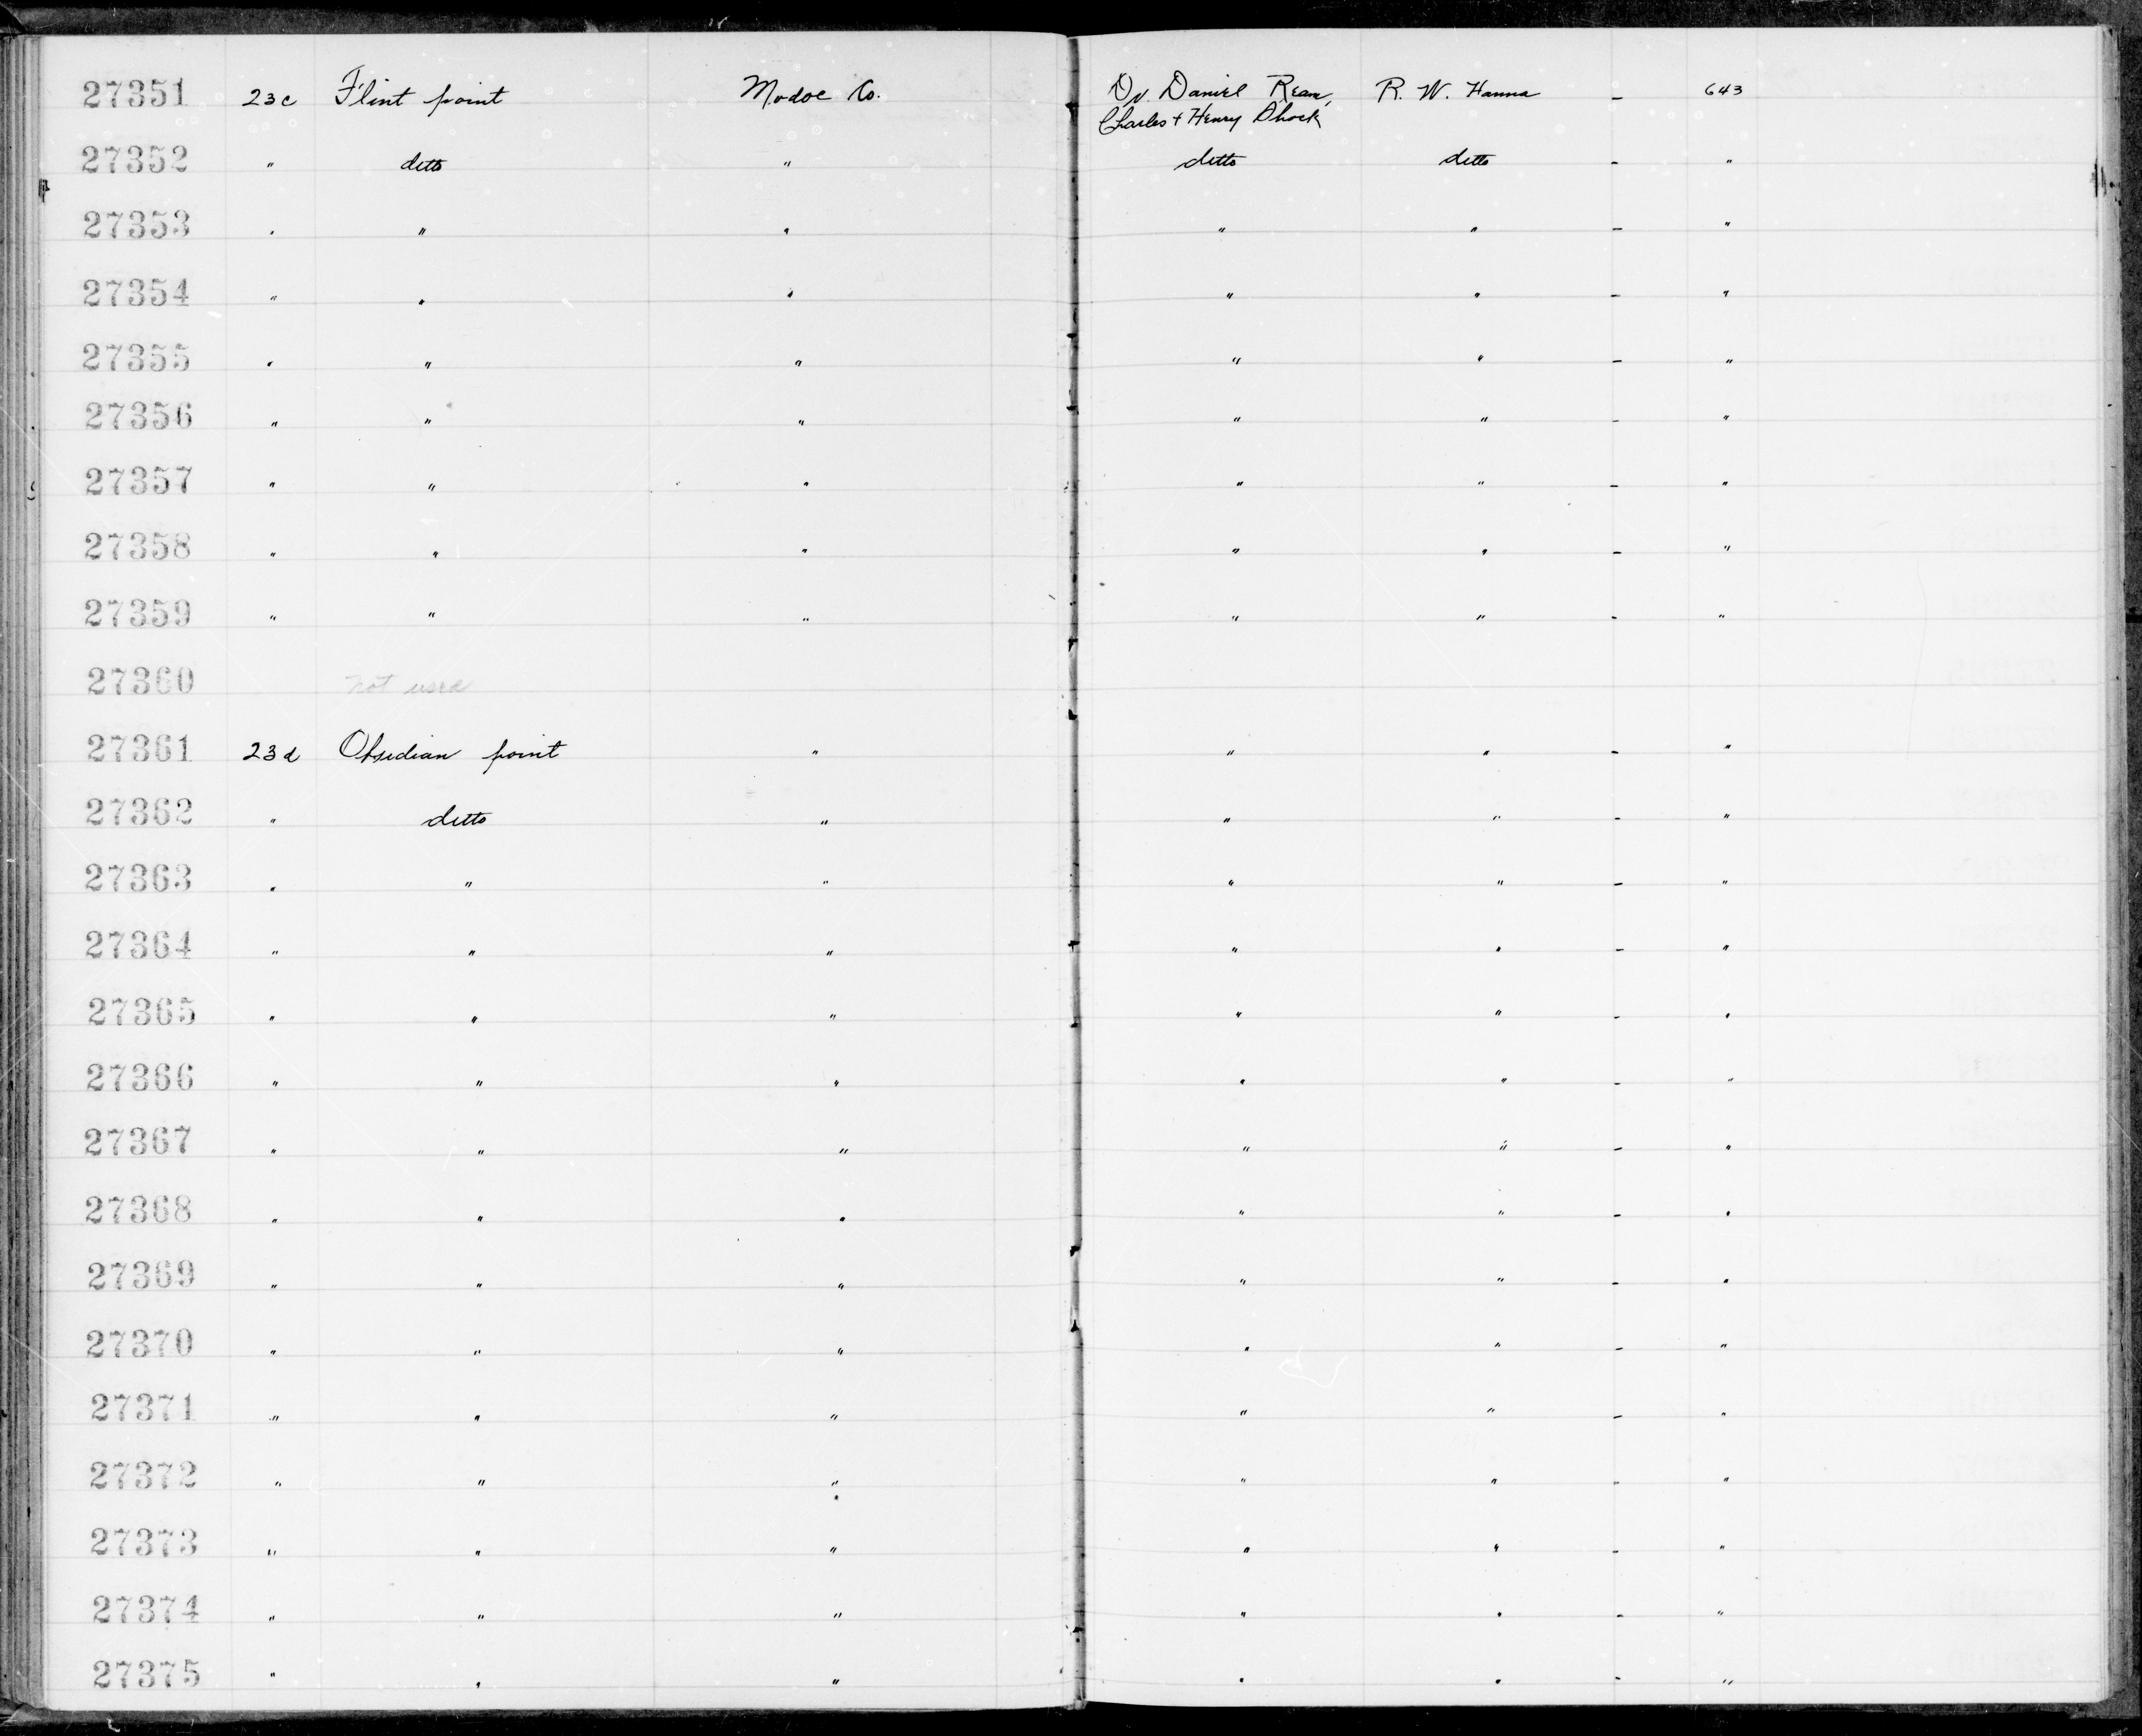 27351 23c Flint point Modoc Co. Dr. Daniel Ream, R. W. Hanna - 643
Charles + Henry Shock
27352 " ditto " ditto ditto - "
27353 " " " " " - "
27354 " " " " " - "
27355 " " " " " - "
27356 " " " " " - "
27357 " " " " " - "
27358 " " " " " - "
27359 " " " " " - "
27360 not used
27361 23d Obsidian point " " " - "
27362 " ditto " " " - "
27363 " " " " " - "
27364 " " " " " - "
27365 " " " " " - "
27366 " " " " " - "
27367 " " " " " - "
27368 " " " " " - "
27369 " " " " " - "
27370 " " " " " - "
27371 " " " " " - "
27372 " " " " " - "
27373 " " " " " - "
27374 " " " " " - "
27375 " " " " " - "